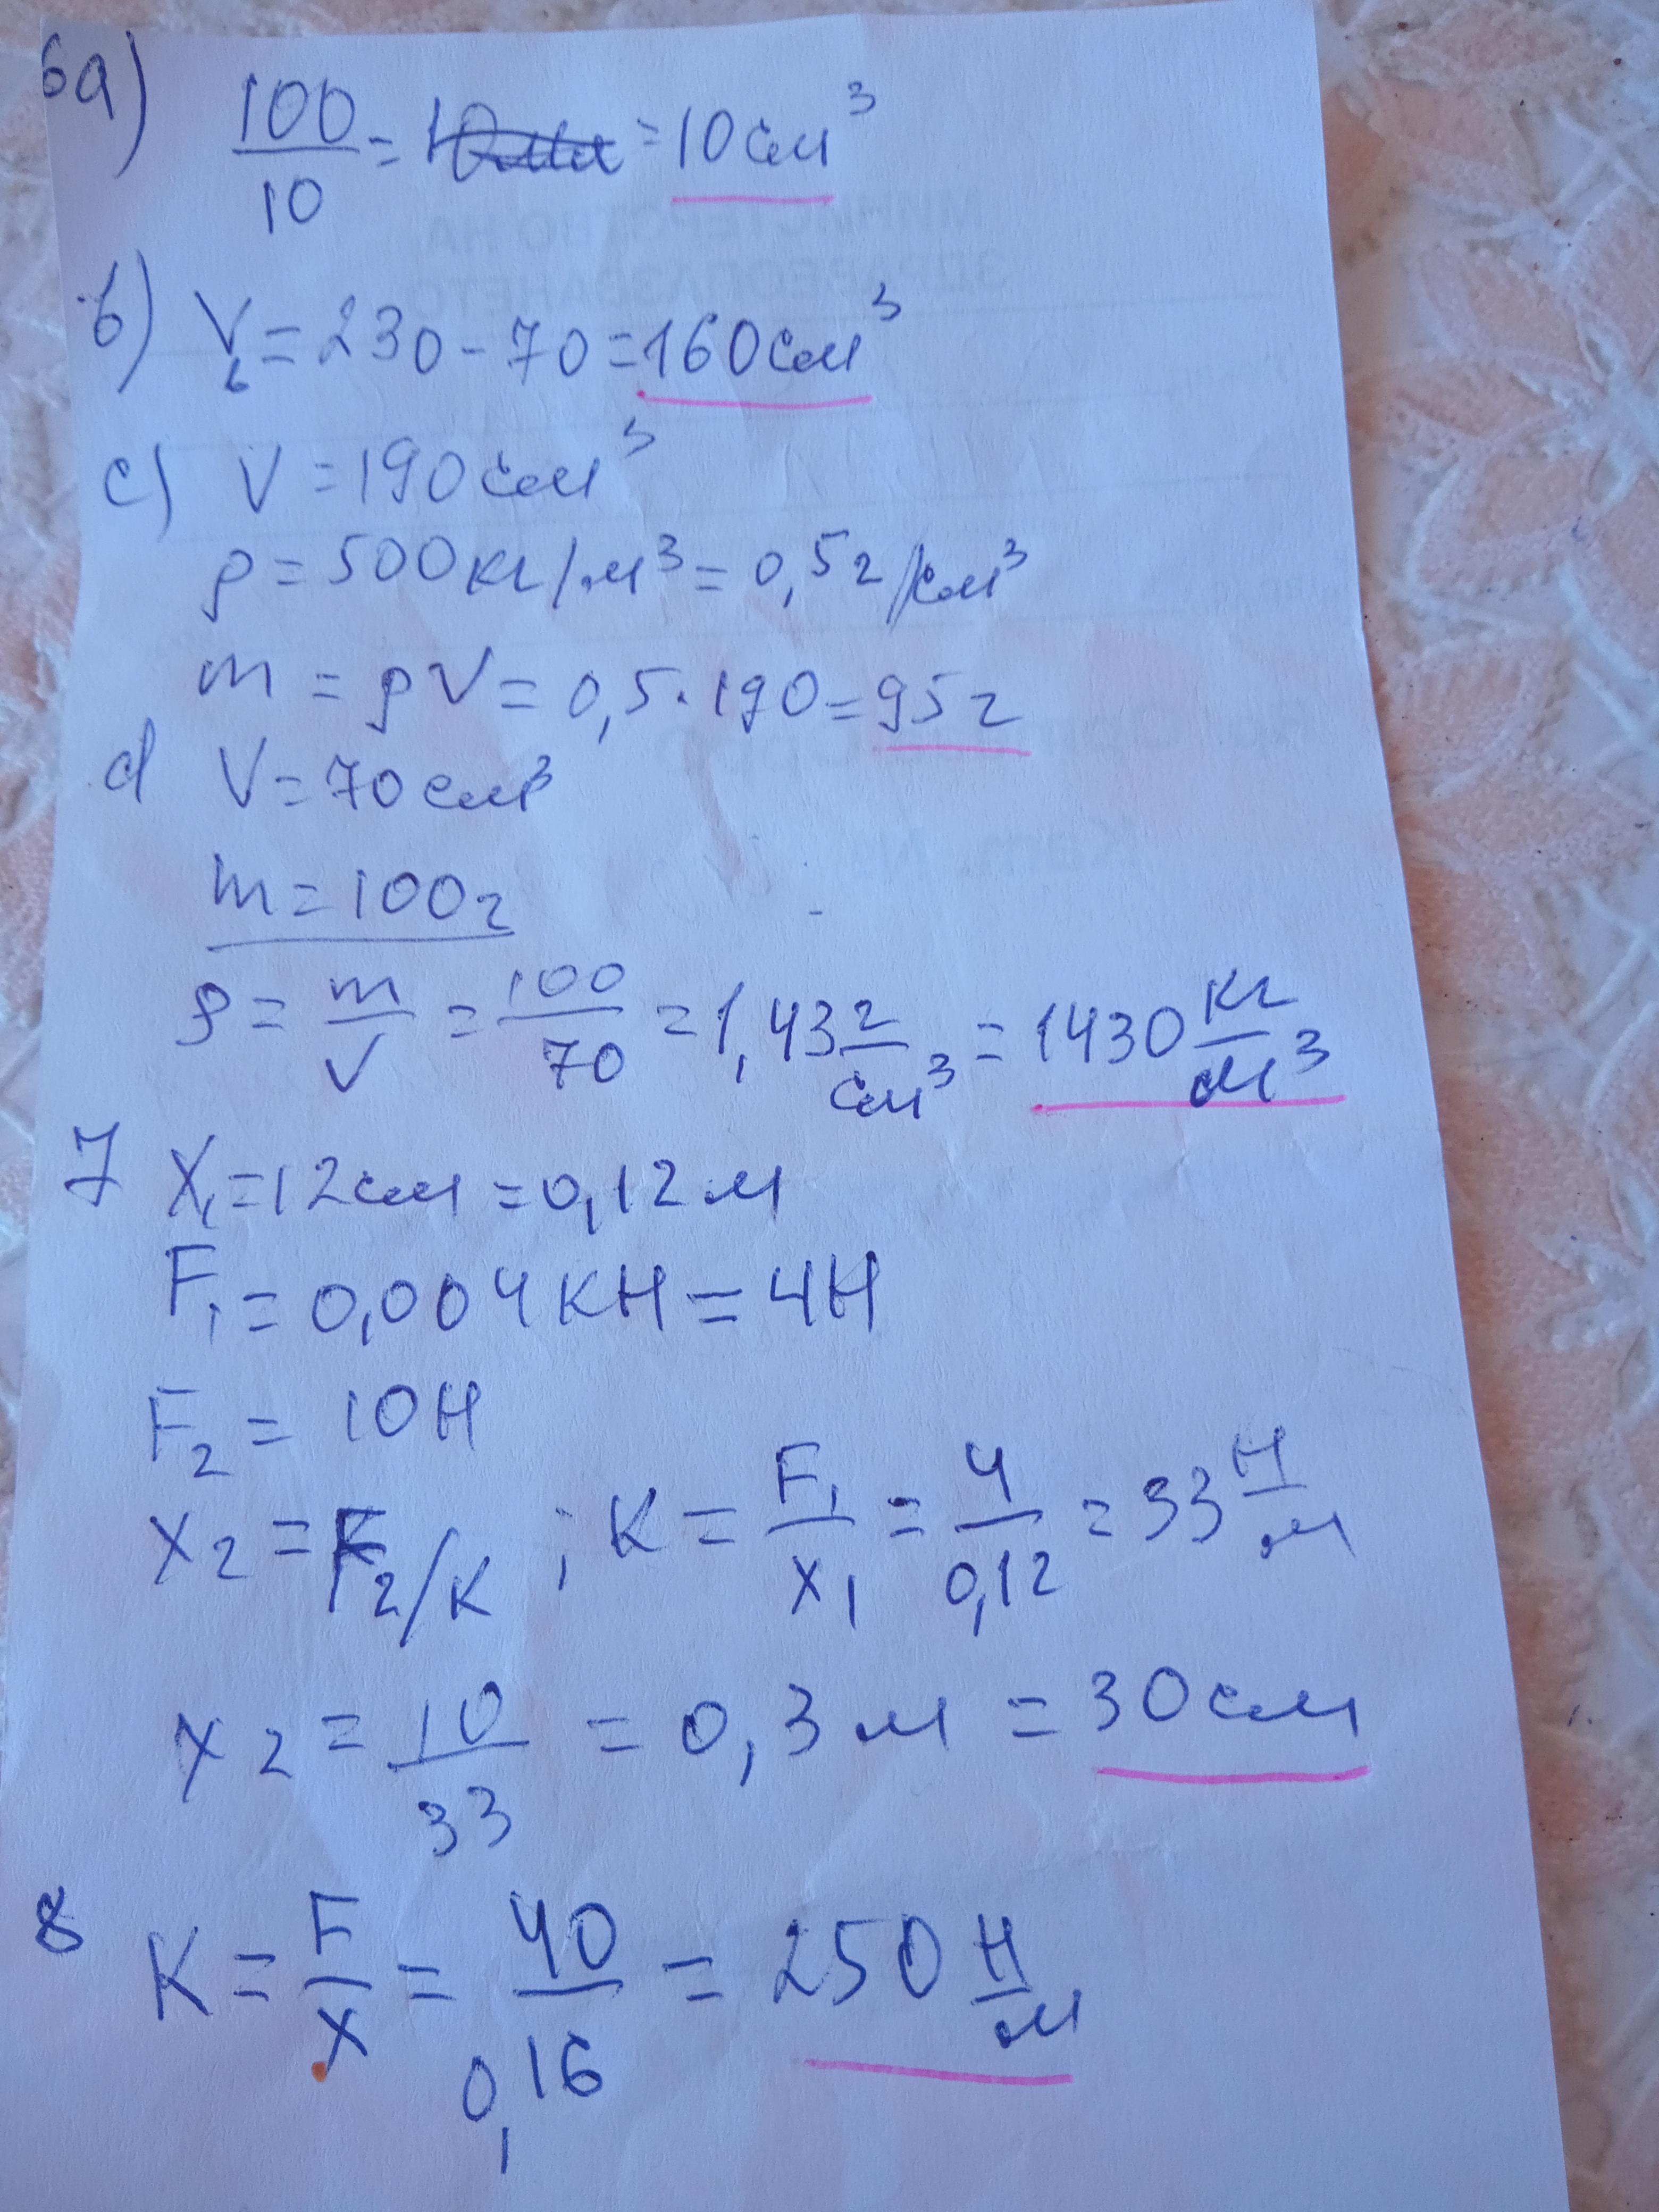 6a) 100/10 = = 10 см³
МИНИСТЕРСТВО НА
ЗДРАВЕОПАЗВАНЕТО
б) V₆ = 230 - 70 = 160 см³
c) V = 190 см³
ρ = 500 кг/м³ = 0,5 г/см³
m = ρV = 0,5 · 190 = 95 г
d V = 70 см³
m = 100 г
ρ = m/V = 100/70 = 1,43 г/см³ = 1430 кг/м³
7 X₁ = 12 см = 0,12 м
F₁ = 0,004 кН = 4Н
F₂ = 10Н
x₂ = F₂/K ; K = F₁/x₁ = 4/0,12 = 33 Н/м
x₂ = 10/33 = 0,3 м = 30 см
8 K = F/x = 40/0,16 = 250 Н/м